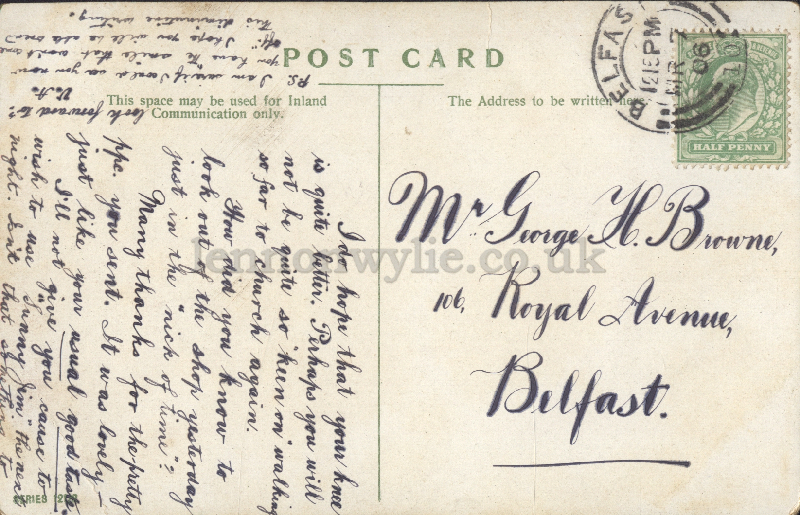 POST CARD
This space may be used for Inland
Communication only.
The Address to be written here.
BELFAST
12 15 PM
MR 7
06
HALF PENNY
Mr George H. Browne,
106, Royal Avenue,
Belfast.
I do hope that your knee
is quite better. Perhaps you will
not be quite so "keen on" walking
so far to church again.
How did you know to
look out of the shop yesterday
just in the "nick of time"?
Many thanks for the pretty
ppc. you sent. It was lovely —
just like your usual good taste.
I'll not give you cause to
wish to use "Sunny Jim" the next
night. Isn't that something to
look forward to?
V. A.
P.S. I am
you have "the smile that won't come
off." I hope you will be able to read
this diminutive writing.
SERIES
lennonwylie.co.uk